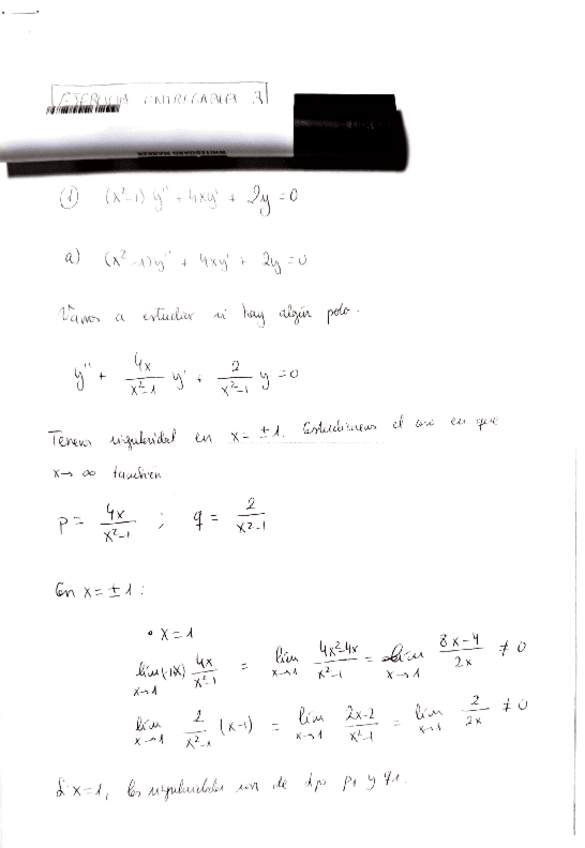 EJERCICIOS ENTREGABLES 3
WHITEBOARD MARKER
① (x²-1) y'' + 4xy' + 2y = 0
a) (x²-1)y'' + 4xy' + 2y = 0
Vamos a estudiar si hay algún polo.
y'' + 4x/(x²-1) y' + 2/(x²-1) y = 0
Tenemos singularidad en x = ±1. Estudiaremos el caso en que
x→∞ también
p = 4x/(x²-1) ; q = 2/(x²-1)
En x = ±1:
• x=1
lím (-1x) 4x/(x²-1) = lím 4x²-4x/(x²-1) = lím (8x-4)/2x ≠ 0
x→1 x→1 x→1
lím 2/(x²-1) (x-1) = lím (2x-2)/(x²-1) = lím 2/2x ≠ 0
x→1 x→1 x→1
x=1, las singularidades son de tipo p1 y q1.